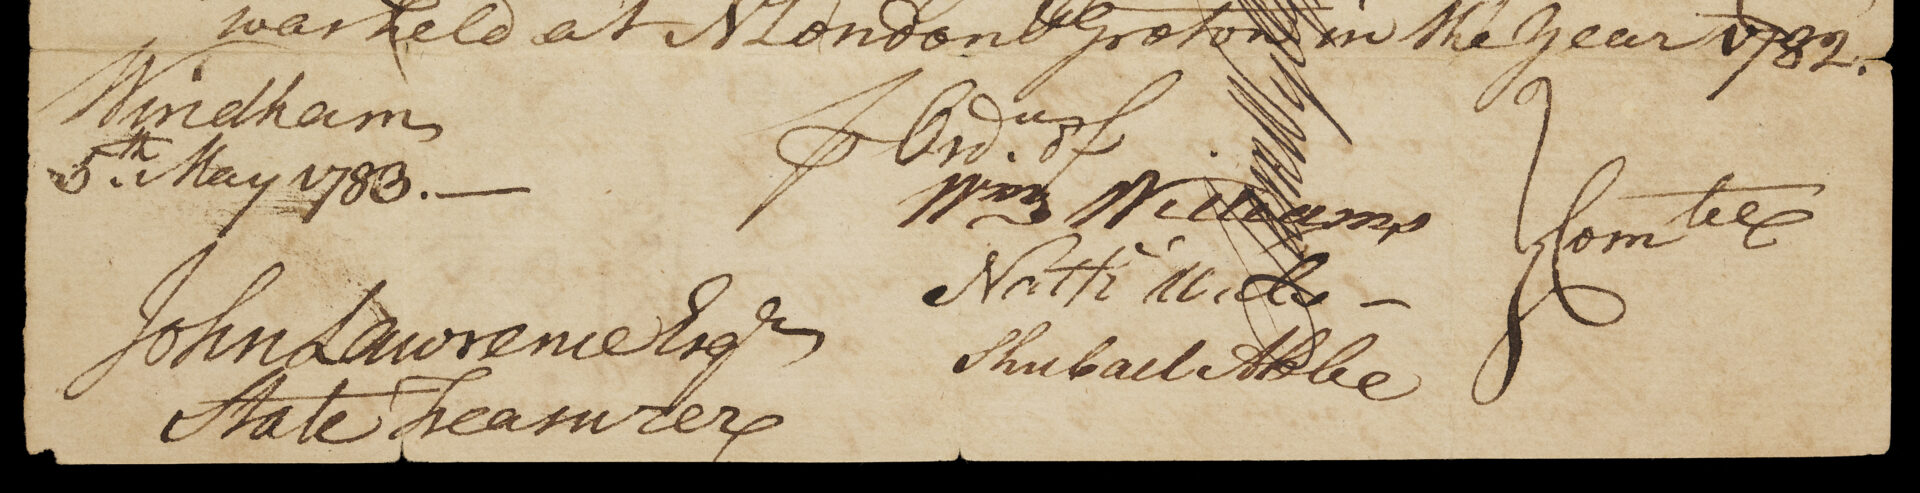 was held at N London & Groton in the Year 1782.
Windham
5th. May 1783.
Ord. of
Wm Williams
Nathl Wales
Shubael Abbe
Comtee
John Lawrence Esqr
State Treasurer